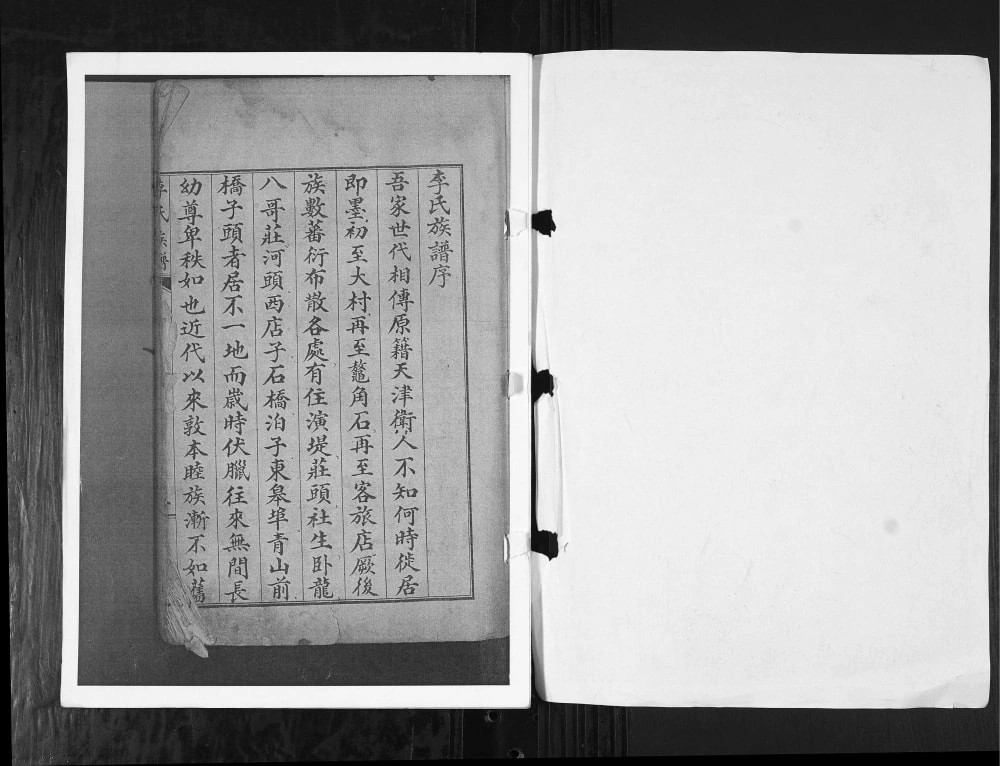 李氏族譜序
吾家世代相傳原籍天津衛人不知何時徙居
即墨初至大村再至鼇角石再至客旅店厥後
族數蕃衍布散各處有住演堤莊頭社生卧龍
八哥莊河頭西店子石橋泊子東皋埠青山前
橋子頭者居不一地而歲時伏臘往來無間長
幼尊卑秩如也近代以來敦本睦族漸不如舊
李氏族譜